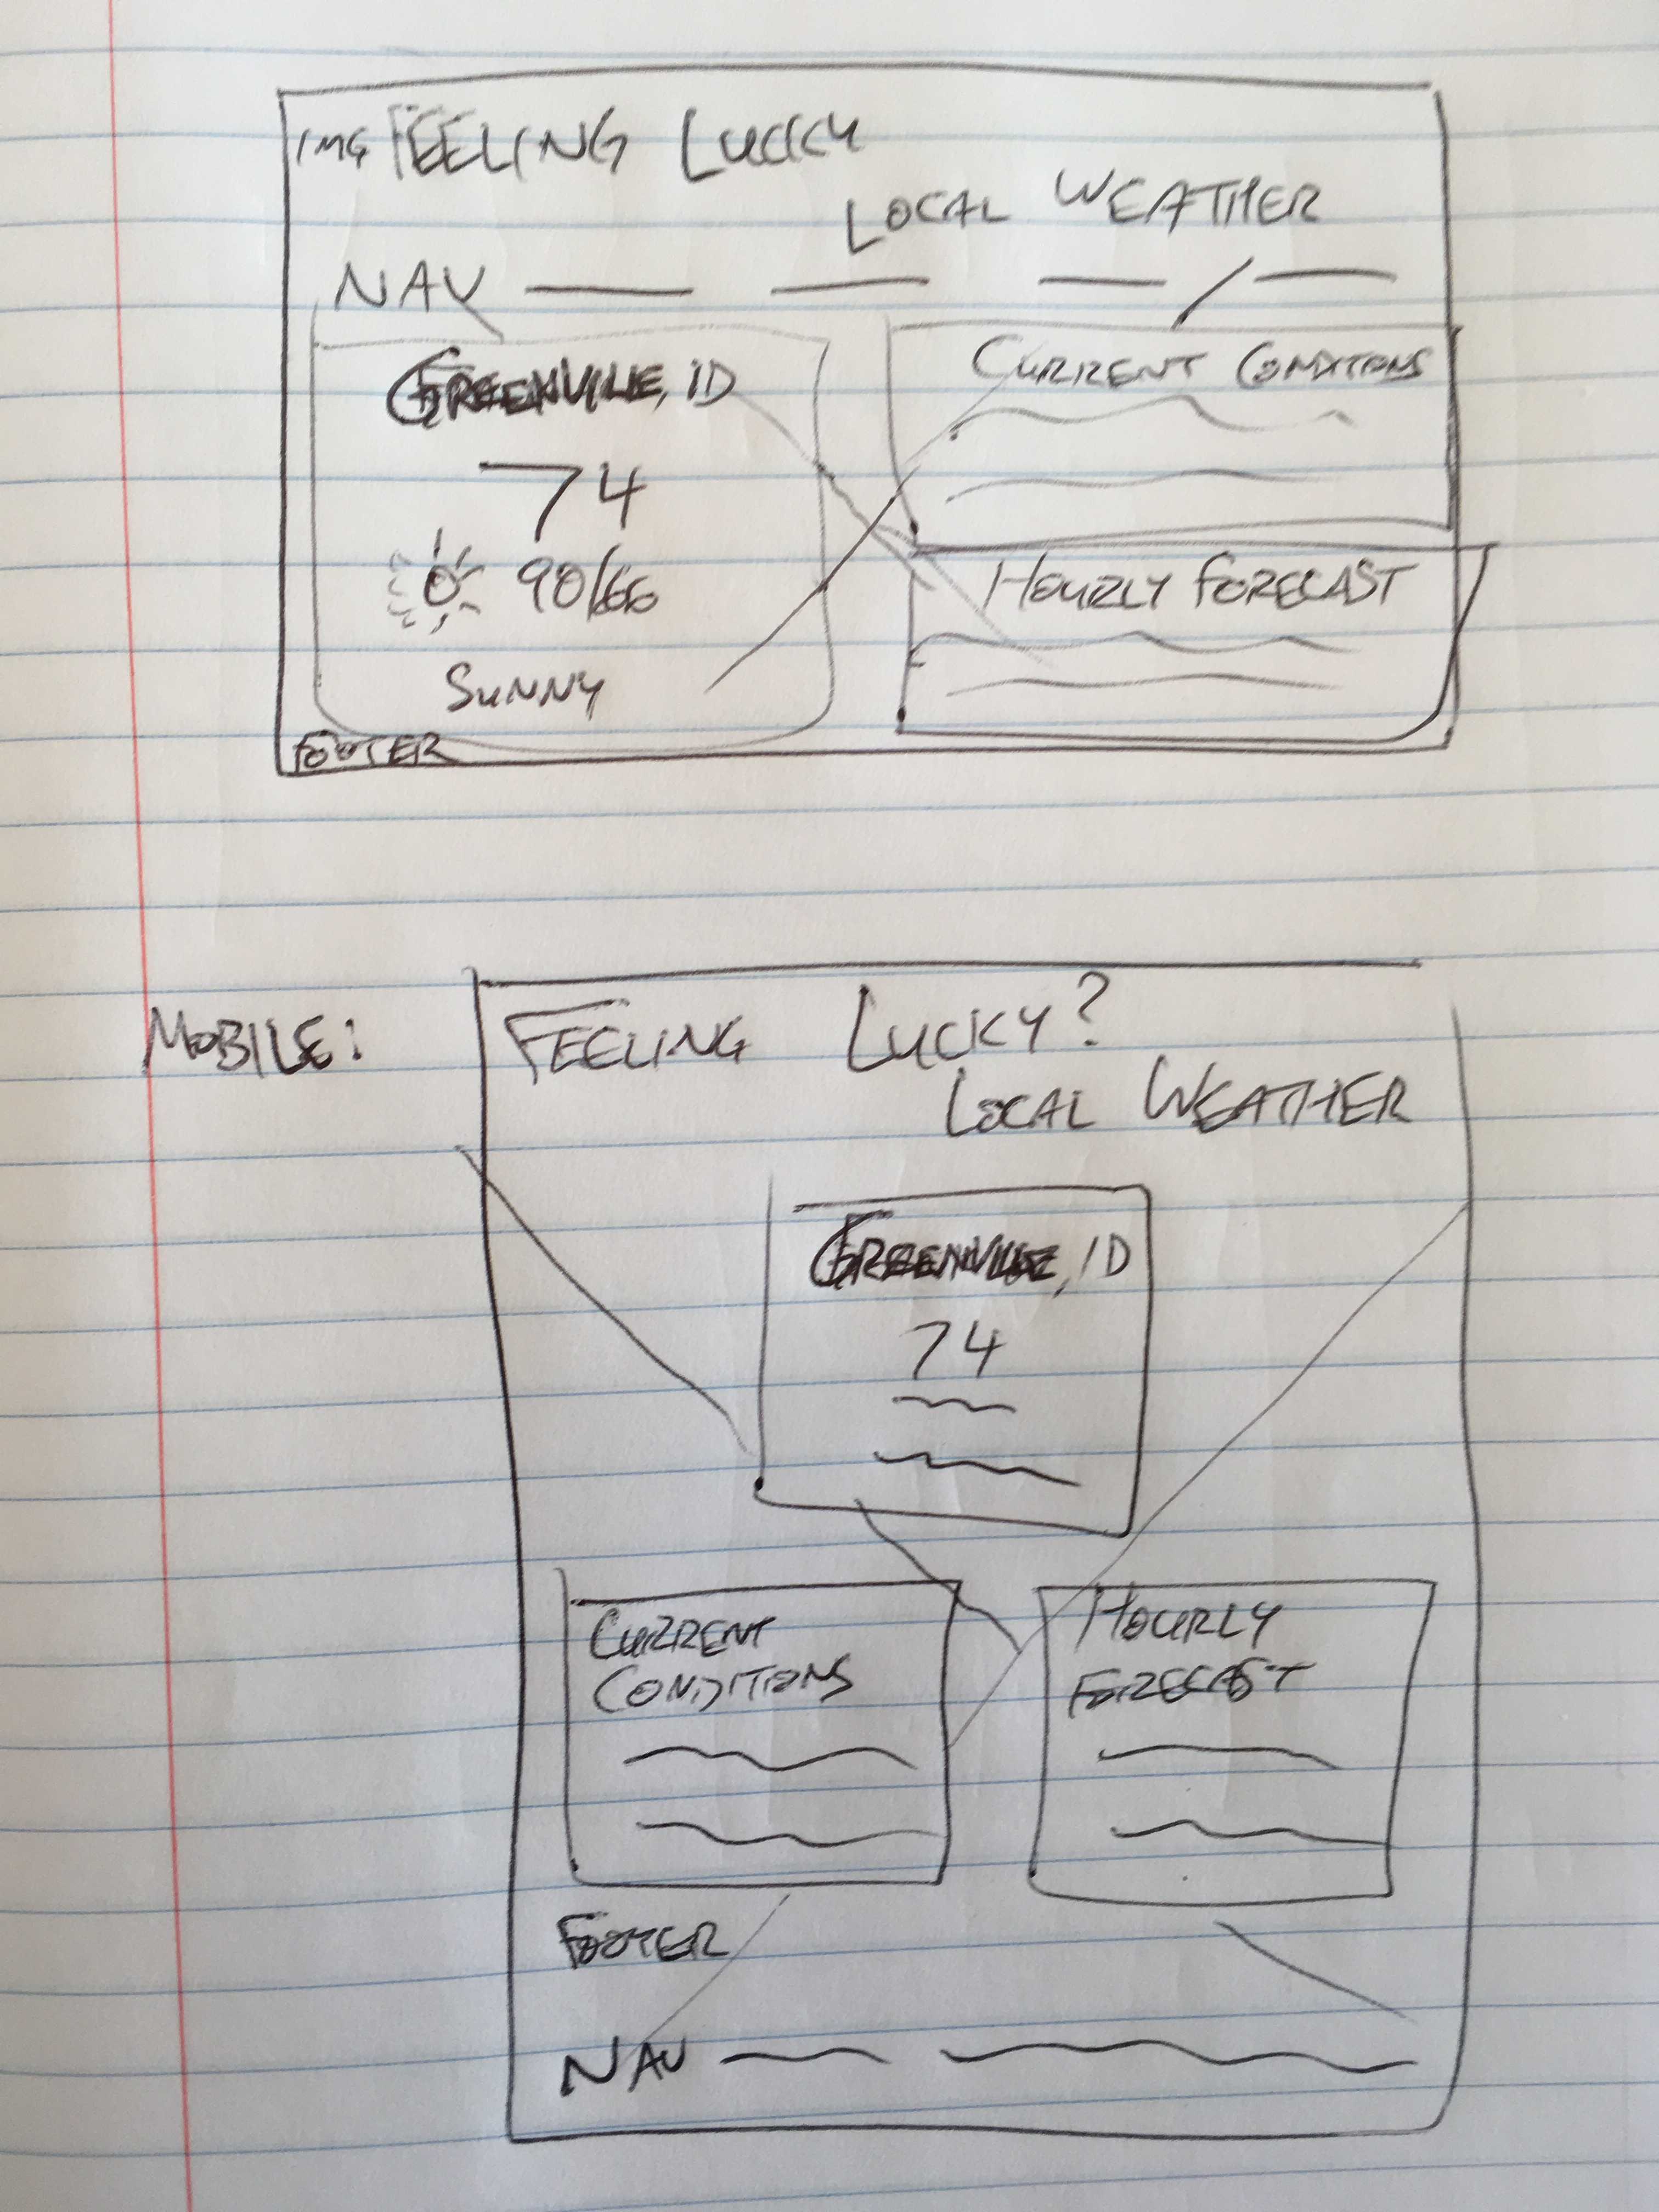 IMG FEELING LUCKY
LOCAL WEATHER
NAV
GREENVILLE, ID
74
90/66
SUNNY
CURRENT CONDITIONS
HOURLY FORECAST
FOOTER
MOBILE:
FEELING LUCKY?
LOCAL WEATHER
GREENVILLE, ID
74
CURRENT
CONDITIONS
HOURLY
FORECAST
FOOTER
NAV